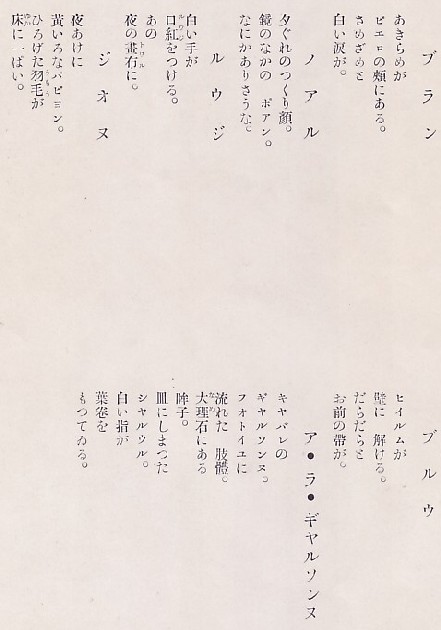 ブラン
あきらめが
ピエロの頬にある。
さめざめと
白い涙が。
ノアル
夕ぐれのつくり顔。
鏡のなかの ポアン。
なにかありさうな。
ルウジ
白い手が
口紅をつける。
あの
夜の畫布に。
ジオヌ
夜あけに
黄いろなパピヨン。
ひろげた羽毛が
床に一ぱい。
ブルウ
ヒイルムが
壁に 解ける。
だらだらと
お前の帶が。
ア・ラ・ギヤルソンヌ
キヤバレの
ギヤルソンヌ。
フオトイユに
流れた 肢體。
大理石にある
眸子。
皿にしまつた
シヤルウル。
白い指が
葉卷を
もつてゐる。